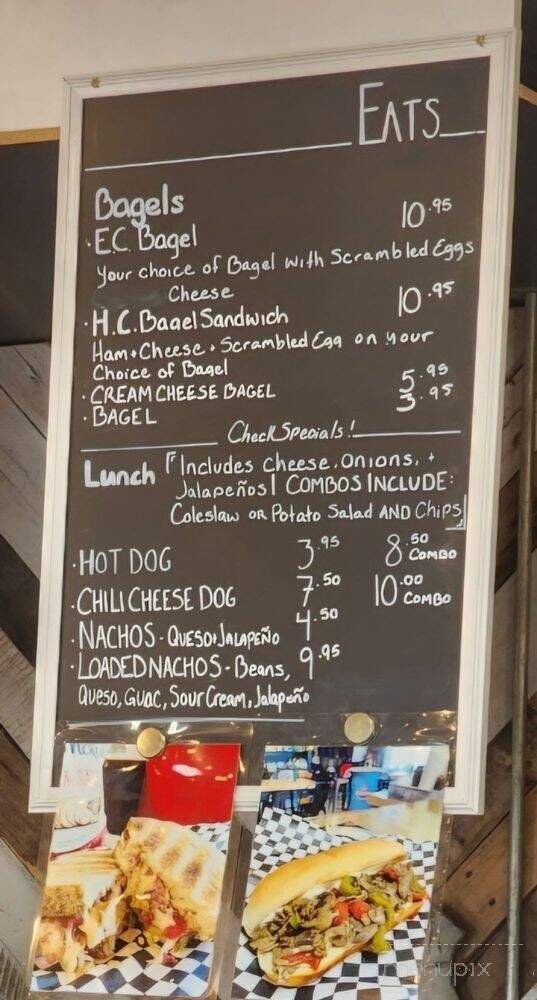 EATS
Bagels
· E.C. Bagel 10.95
Your choice of Bagel with Scrambled Eggs
Cheese
· H.C. Bagel Sandwich 10.95
Ham + Cheese + Scrambled Egg on your
Choice of Bagel
· CREAM CHEESE BAGEL 5.95
· BAGEL 3.95
Check Specials!
Lunch [Includes Cheese, Onions, +
Jalapeños| COMBOS INCLUDE:
Coleslaw OR Potato Salad AND Chips]
· HOT DOG 3.95 8.50 COMBO
· CHILI CHEESE DOG 7.50 10.00 COMBO
· NACHOS - QUESO + JALAPEÑO 4.50
· LOADED NACHOS - Beans, 9.95
Queso, Guac, Sour Cream, Jalapeño
menupix